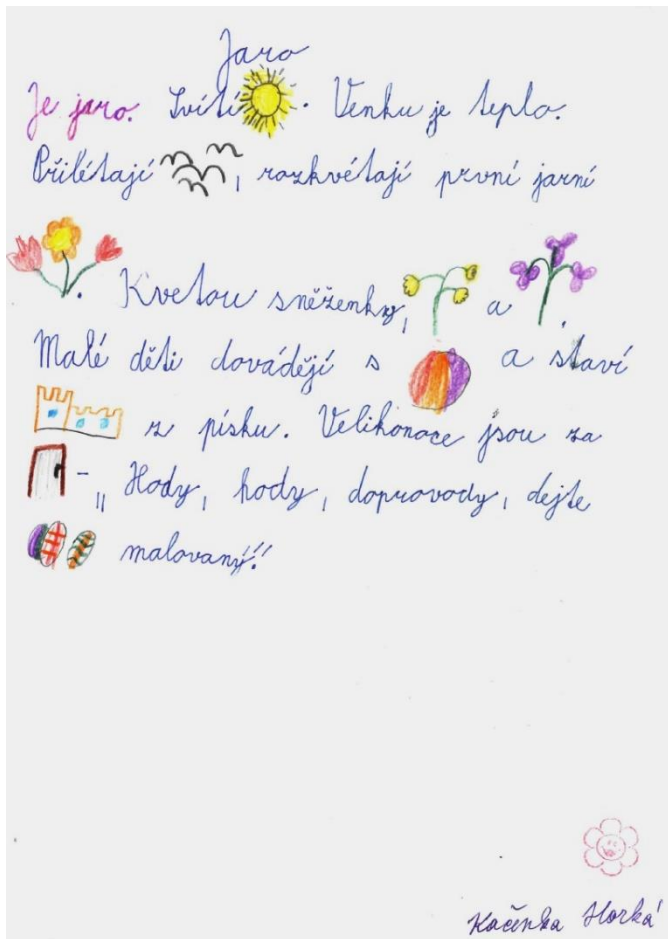 Jaro
Je jaro. Svítí . Venku je teplo.
Přilétají , rozkvétají první jarní
. Kvetou sněženky, a .
Malé děti dovádějí s a staví
z písku. Velikonoce jsou za
- „Hody, hody, doprovody, dejte
malovaný!“
Kačenka Horká